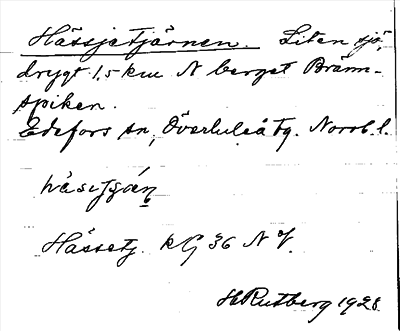 Hässjetjärnen. Liten sjö
drygt 1,5 km N berget Bränn-
spiken.
Edefors sn, Överluleå tg. Norrb. l.
Hässetj. kG 36 NV.
H Rutberg 1928.